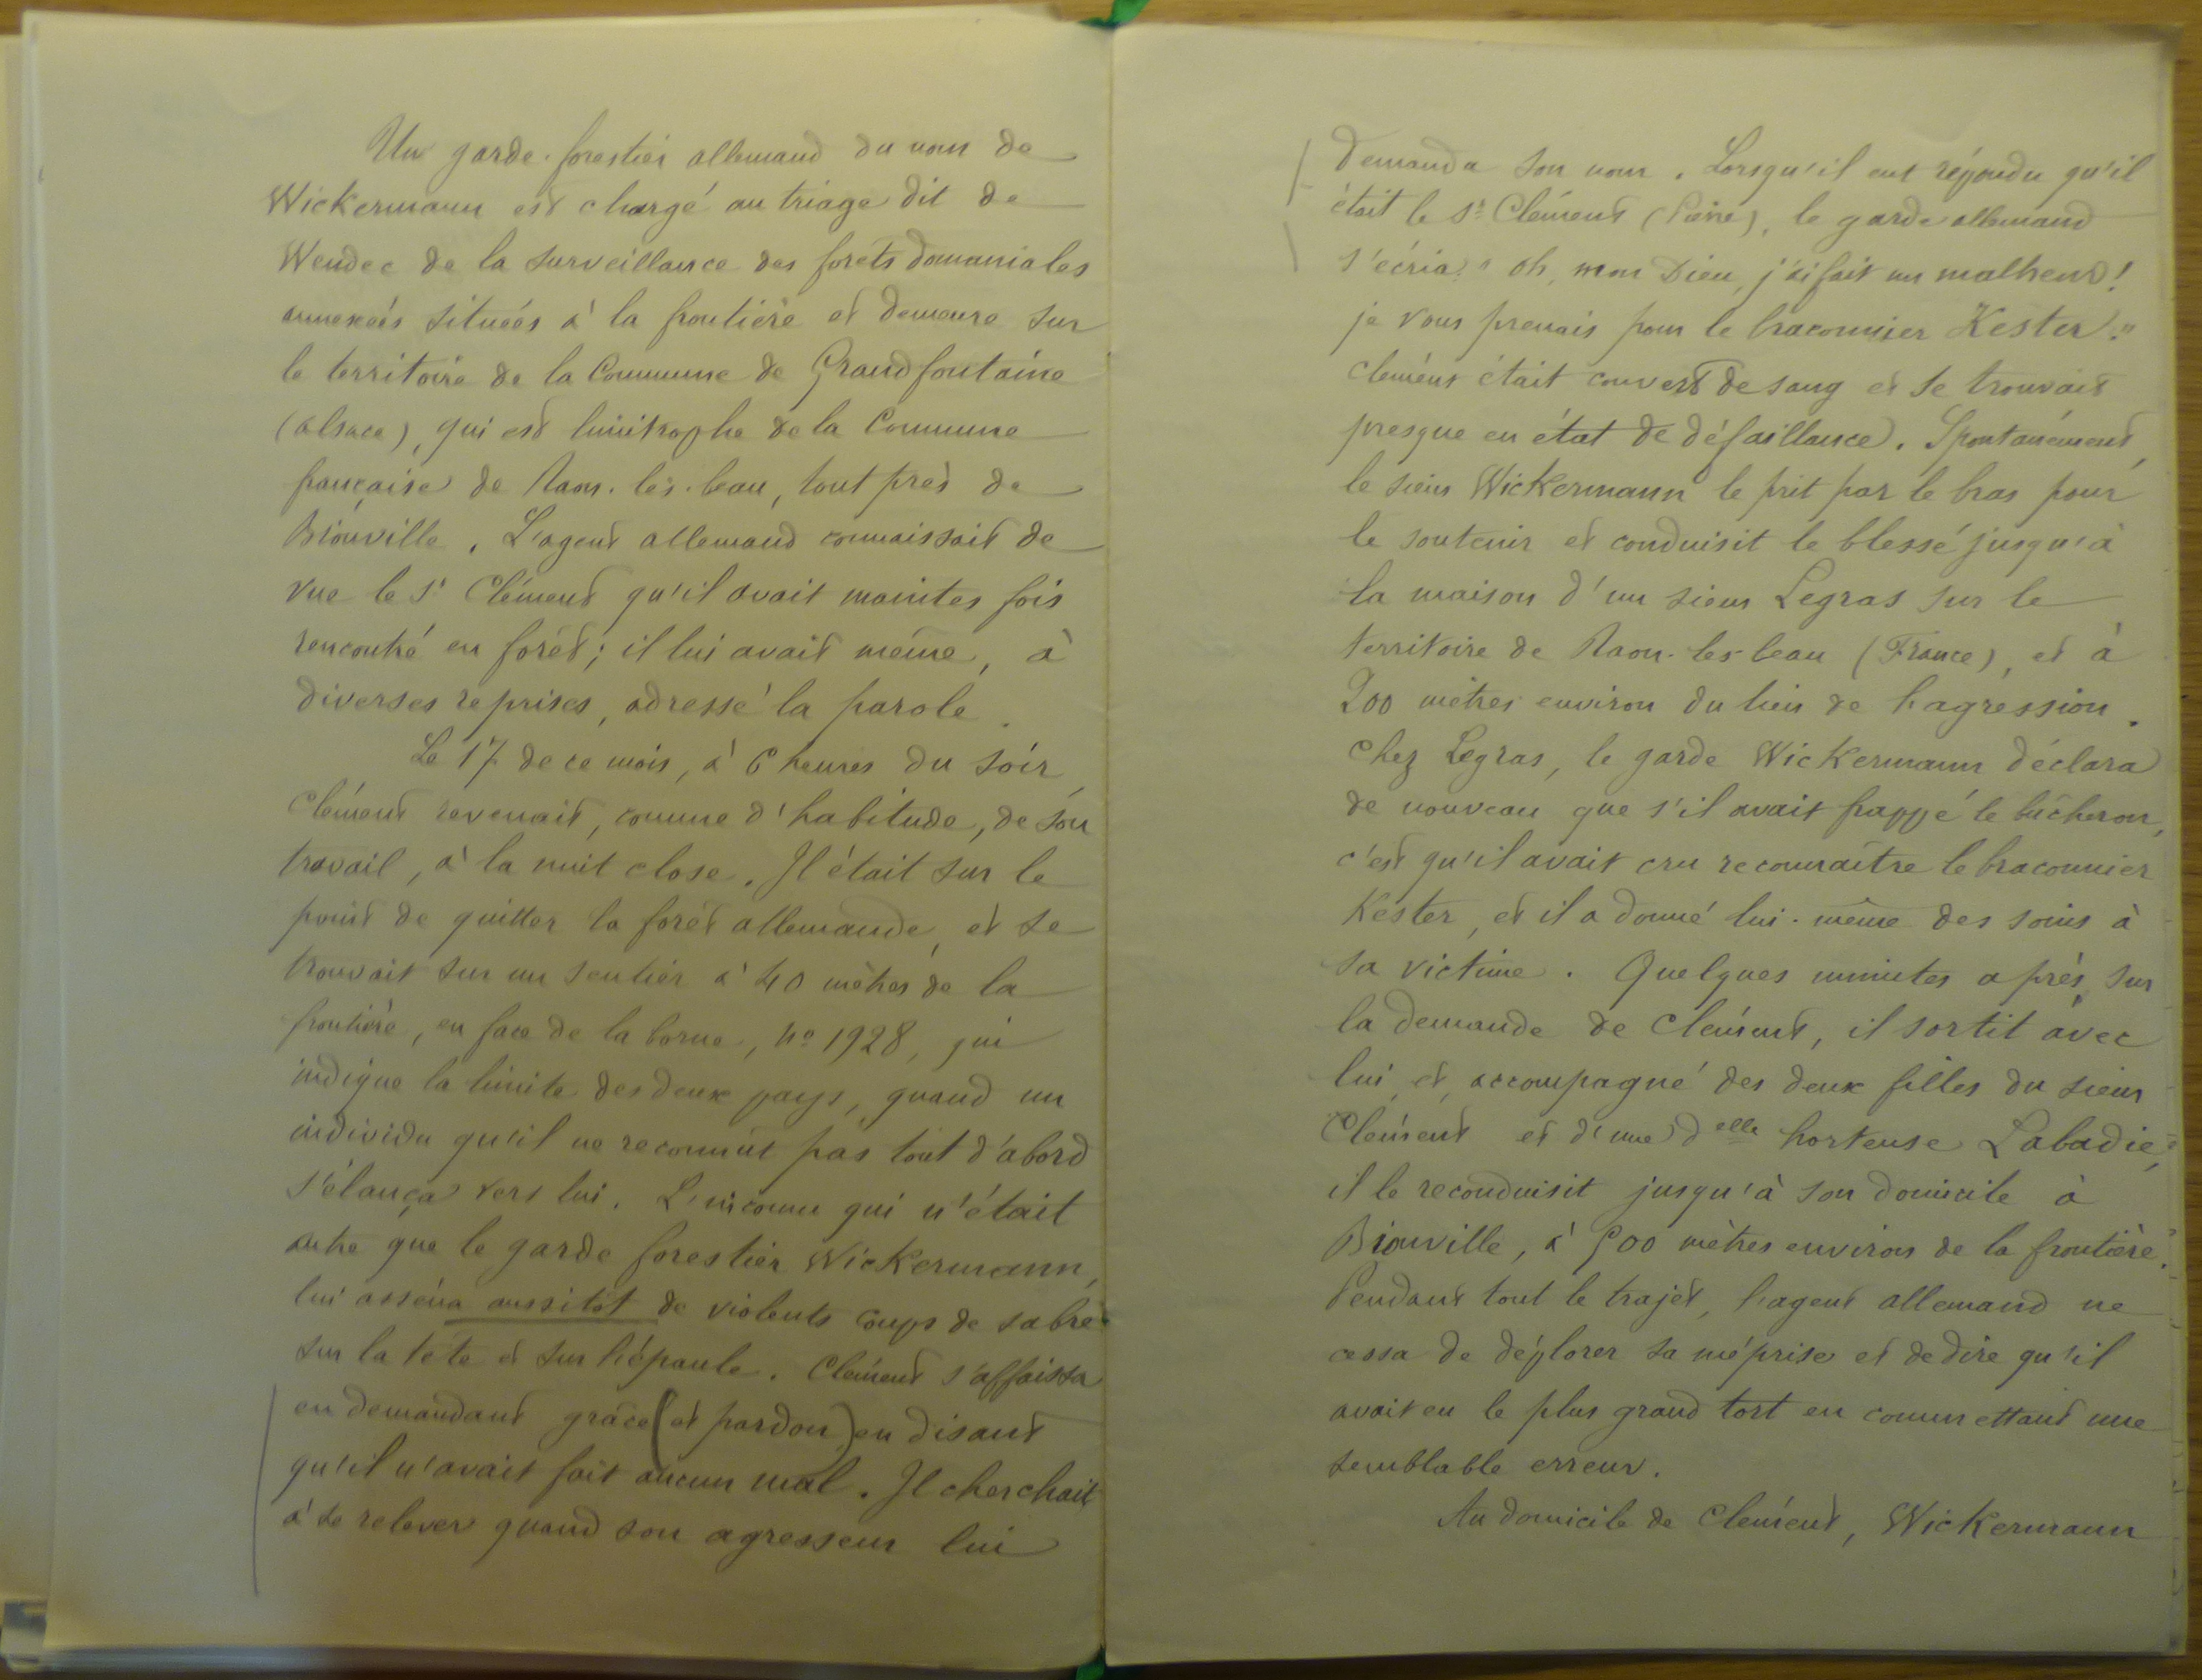 Un garde-forestier allemand du nom de
Wickermann est chargé au triage dit de
Wendec de la surveillance des forêts domaniales
annexées situées à la frontière et demeure sur
le territoire de la Commune de Grandfontaine
(Alsace), qui est limitrophe de la Commune
française de Raon-lès-leau, tout près de
Bionville. L'agent allemand connaissait de
vue le Sr Clément qu'il avait maintes fois
rencontré en forêt; il lui avait même, à
diverses reprises, adressé la parole.
Le 17 de ce mois, à 6 heures du soir,
Clément revenait, comme d'habitude, de son
travail, à la nuit close. Il était sur le
point de quitter la forêt allemande, et se
trouvait sur un sentier à 40 mètres de la
frontière, en face de la borne, no 1928, qui
indique la limite des deux pays, quand un
individu qu'il ne reconnut pas tout d'abord
s'élança vers lui. L'inconnu qui n'était
autre que le garde forestier Wickermann,
lui asséna aussitôt de violents coups de sabre
sur la tête et sur l'épaule. Clément s'affaissa
en demandant grâce (et pardon) en disant
qu'il n'avait fait aucun mal. Il cherchait
à se relever quand son agresseur lui
demanda son nom. Lorsqu'il eut répondu qu'il
était le Sr Clément (Père), le garde allemand
s'écria: "oh, mon Dieu, j'ai fait un malheur!
je vous prenais pour le braconnier Kester."
Clément était couvert de sang et se trouvait
presque en état de défaillance. Spontanément,
le sieur Wickermann le prit par le bras pour
le soutenir et conduisit le blessé jusqu'à
la maison d'un sieur Legras sur le
territoire de Raon-les-leau (France), et à
200 mètres environ du lieu de l'agression.
Chez Legras, le garde Wickermann déclara
de nouveau que s'il avait frappé le bûcheron,
c'est qu'il avait cru reconnaître le braconnier
Kester, et il a donné lui-même des soins à
sa victime. Quelques minutes après, sur
la demande de Clément, il sortit avec
lui, et, accompagné des deux filles du sieur
Clément et d'une delle hortense Labadie,
il le reconduisit jusqu'à son domicile à
Bionville, à 500 mètres environ de la frontière.
Pendant tout le trajet, l'agent allemand ne
cessa de déplorer sa méprise et de dire qu'il
avait eu le plus grand tort en commettant une
semblable erreur.
Au domicile de Clément, Wickermann